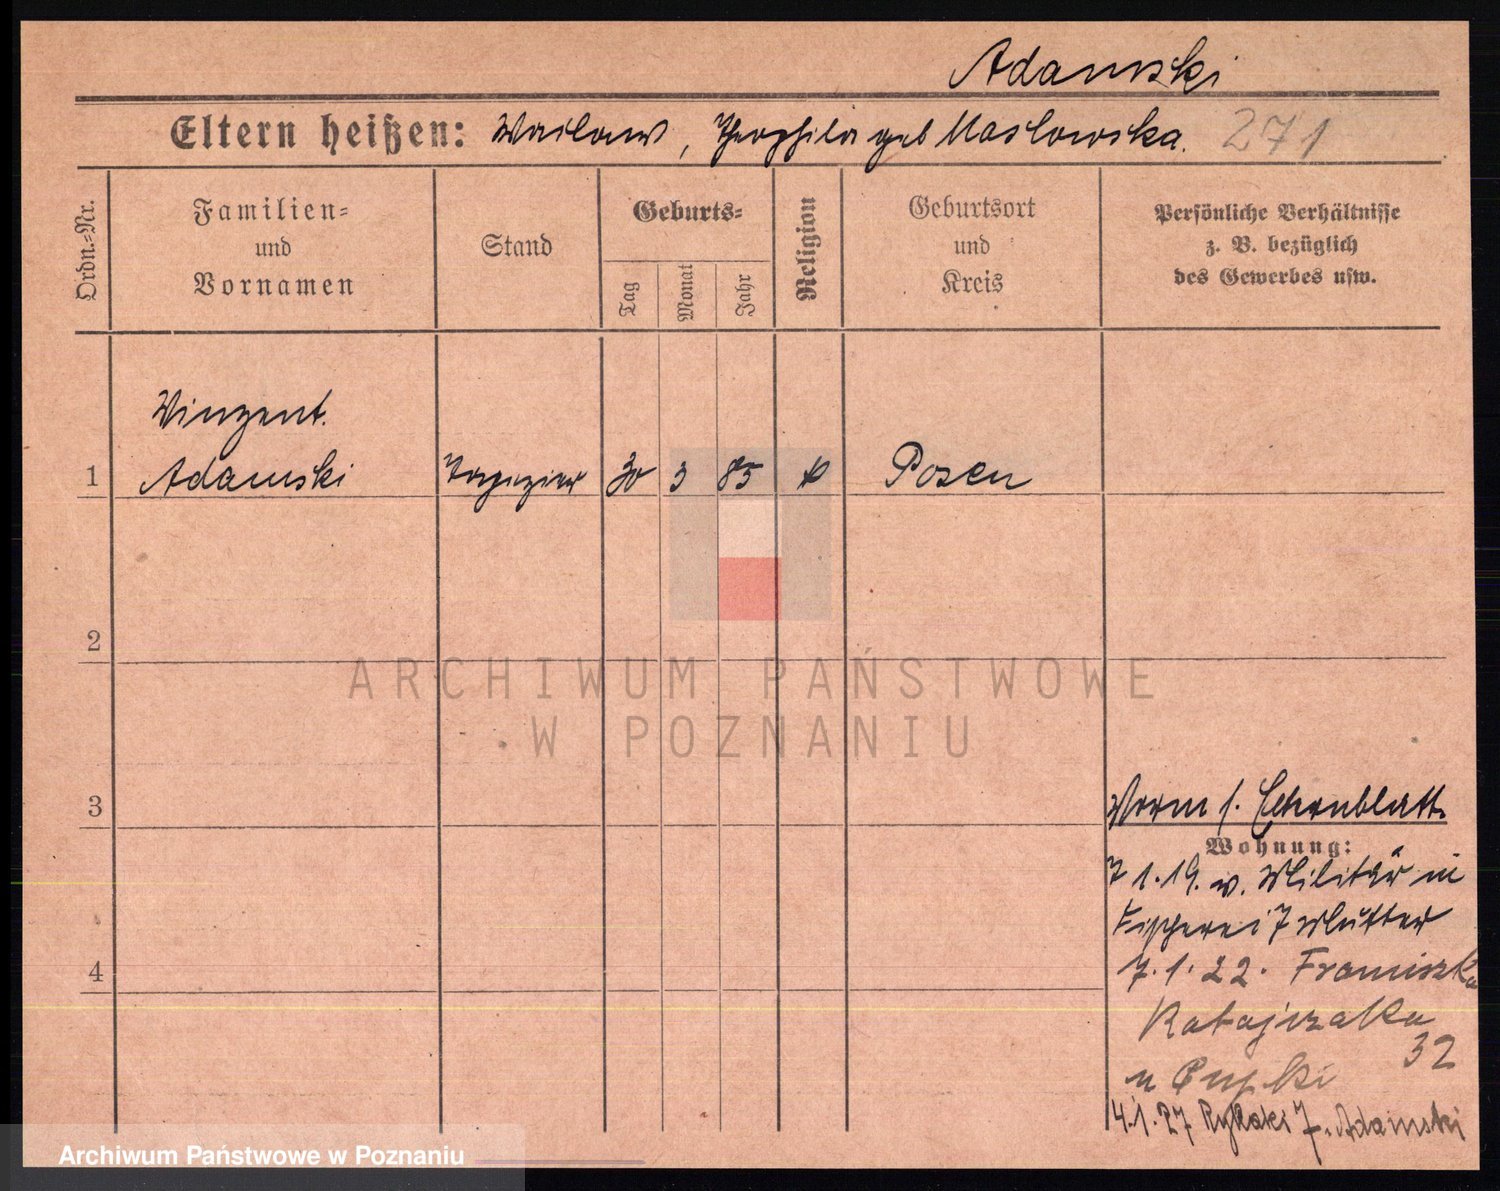 Adamski
Eltern heißen: Wailaw, Theophila geb Maslowska. 271
Ordn.=Nr.
Familien=
und
Vornamen
Stand
Geburts=
Tag
Monat
Jahr
Religion
Geburtsort
und
Kreis
Persönliche Verhältnisse
z. B. bezüglich
des Gewerbes usw.
Vinzent.
1 Adamski Tapezier 30 3 85 k Posen
2
3
Vorm s. Elternblatt
Wohnung:
7 1.19. v. Militär in
Fischerei 7 Mutter
4
7.1.22. Franciszka
Ratajczaka
32
14.1.27 Rybaki 7. Adamski
ARCHIWUM PAŃSTWOWE
W POZNANIU
Archiwum Państwowe w Poznaniu